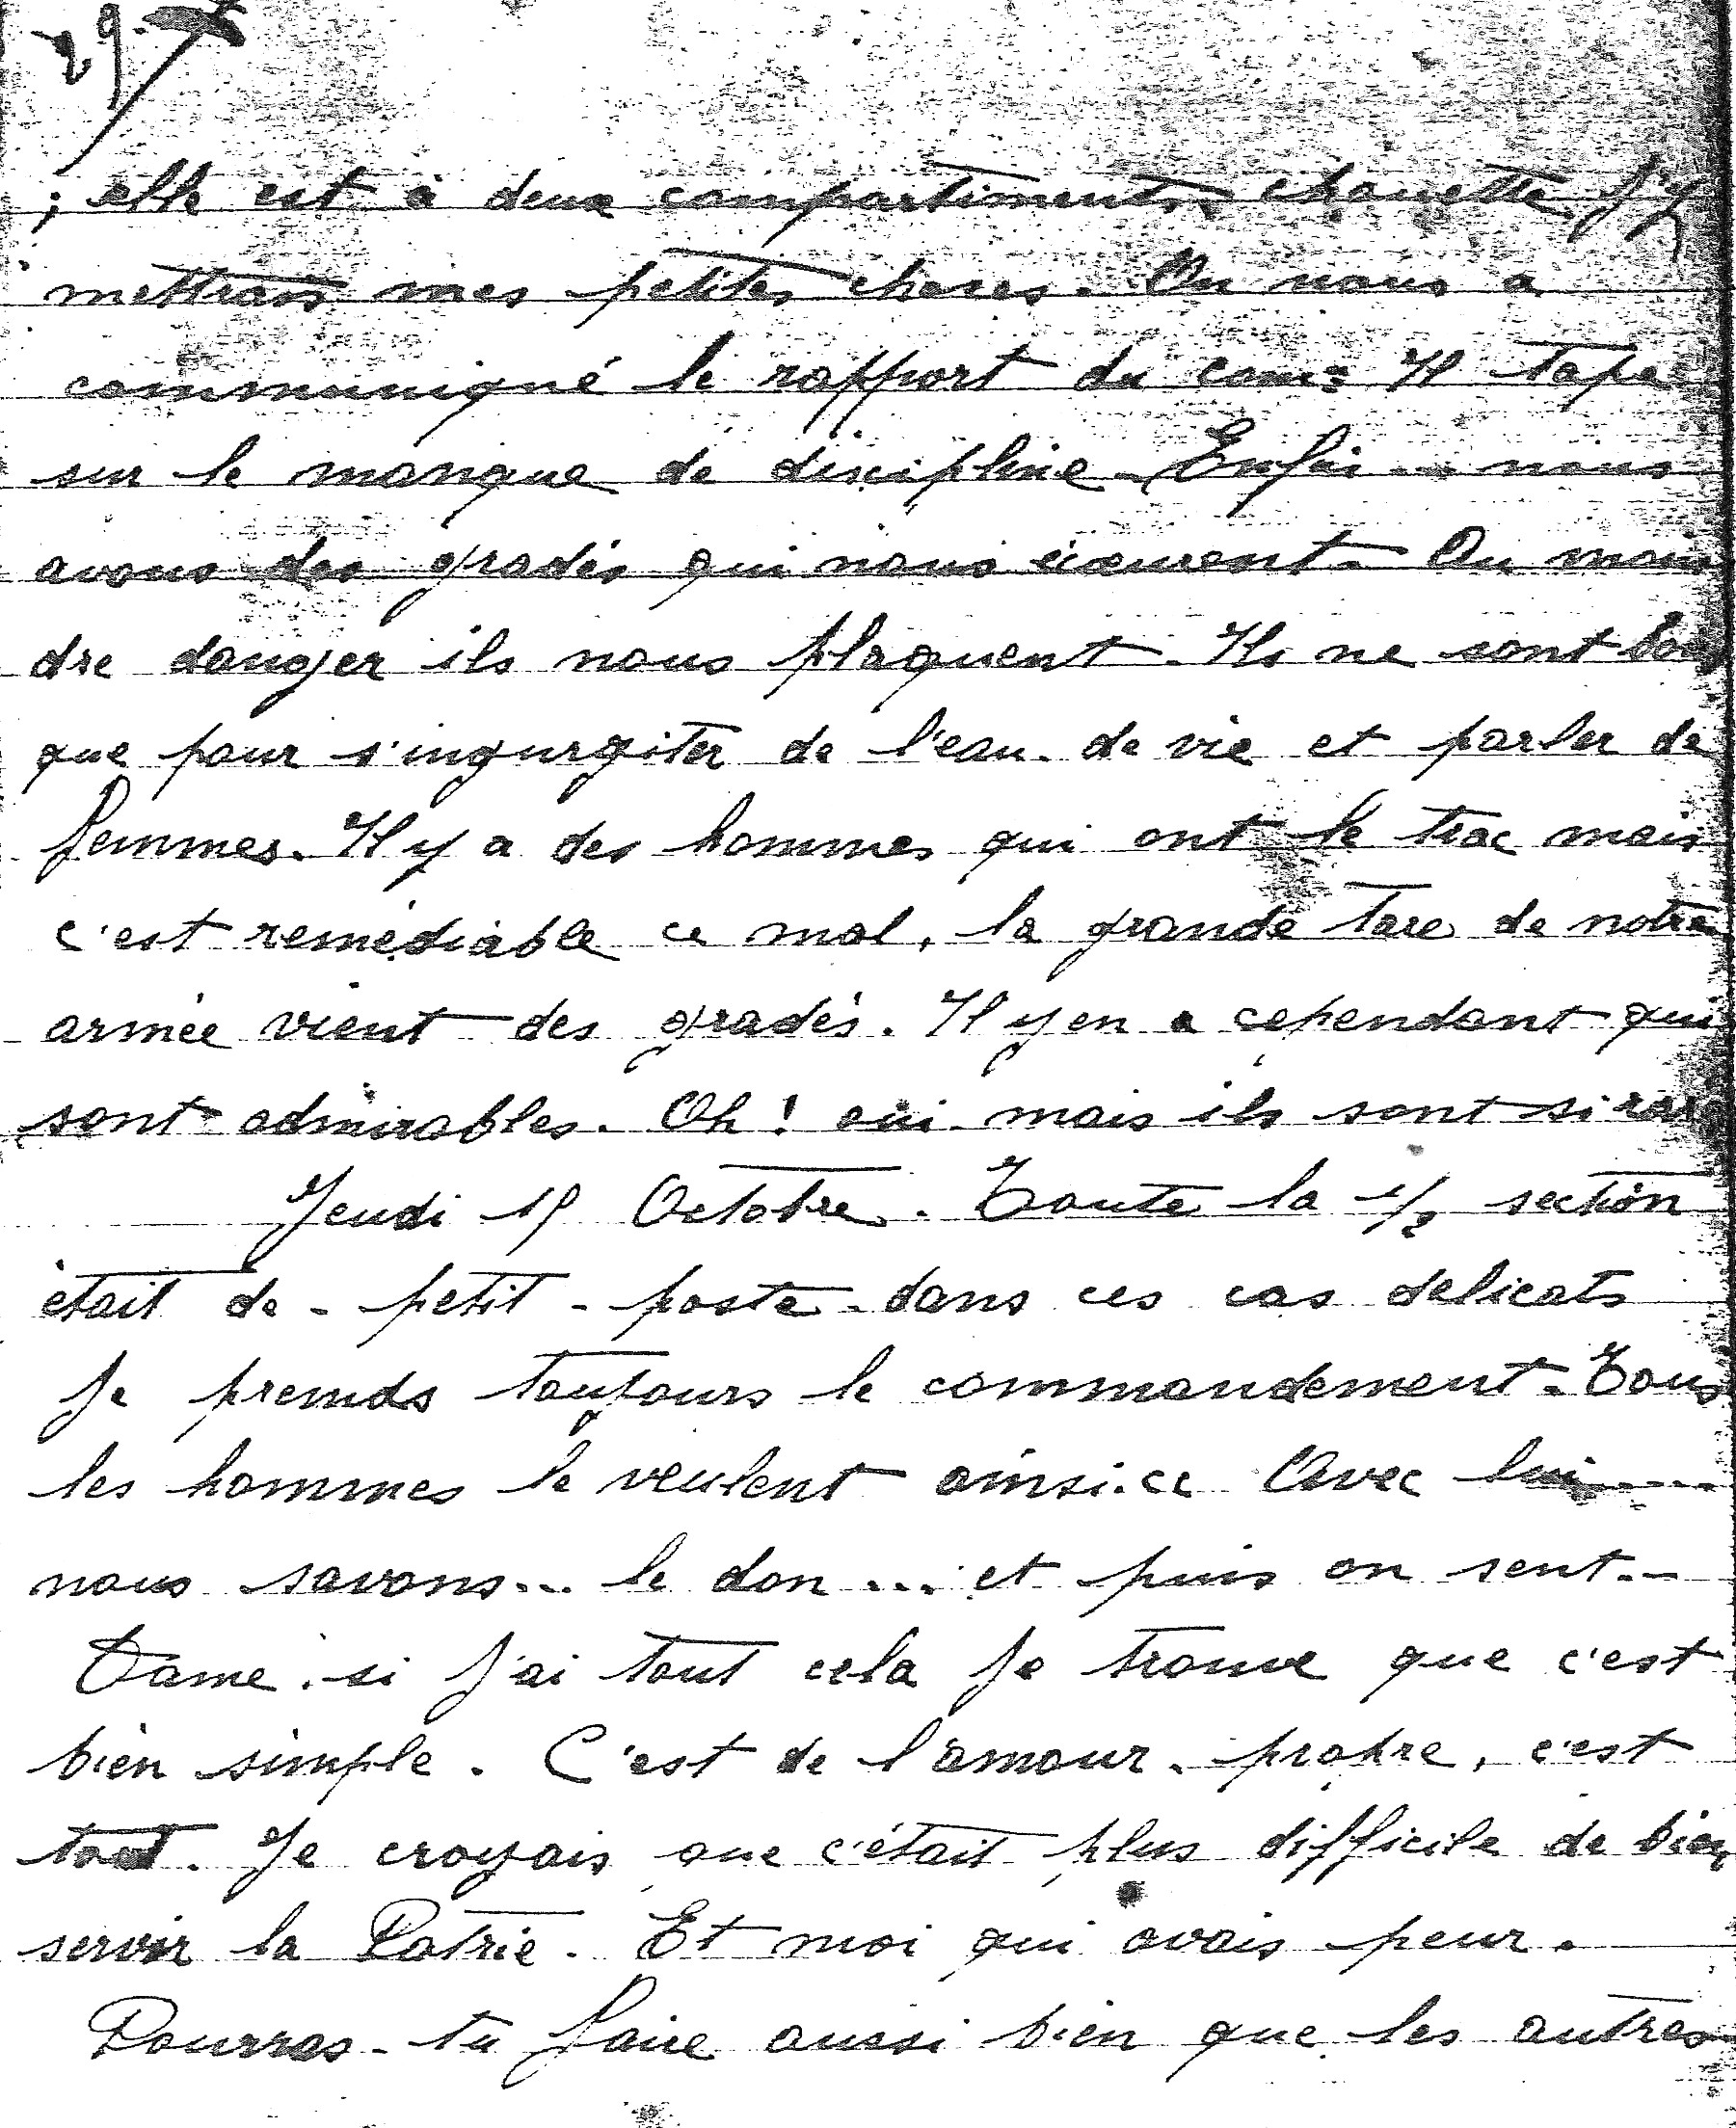 29
; elle est à deux compartiments. chouette j'y
mettrais mes petites choses. On nous a
communiqué le rapport du com: Il tape
sur le manque de discipline. Enfin... nous
avons des gradés qui nous écœurent. Au moin
dre danger ils nous plaquent. Ils ne sont bons
que pour s'ingurgiter de l'eau-de vie et parler de
femmes. Il y a des hommes qui ont le trac mais
c'est remédiable ce mal, la grande tare de notre
armée vient des gradés. Il y en a cependant qui
sont admirables. Oh! oui mais ils sont si rar
Jeudi Octobre. Toute la 1/2 section
était de-petit-poste-dans ces cas delicats
je prends toujours le commandement. Tous
les hommes le veulent ainsi. Avec lui....
nous savons... le don .... et puis on sent..-
Dame. si j'ai tout cela je trouve que c'est
bien simple. C'est de l'amour-propre, c'est
tout. Je croyais que c'était plus difficile de bien
servir la Patrie. Et moi qui avais peur.
Pourras-tu faire aussi bien que les autres